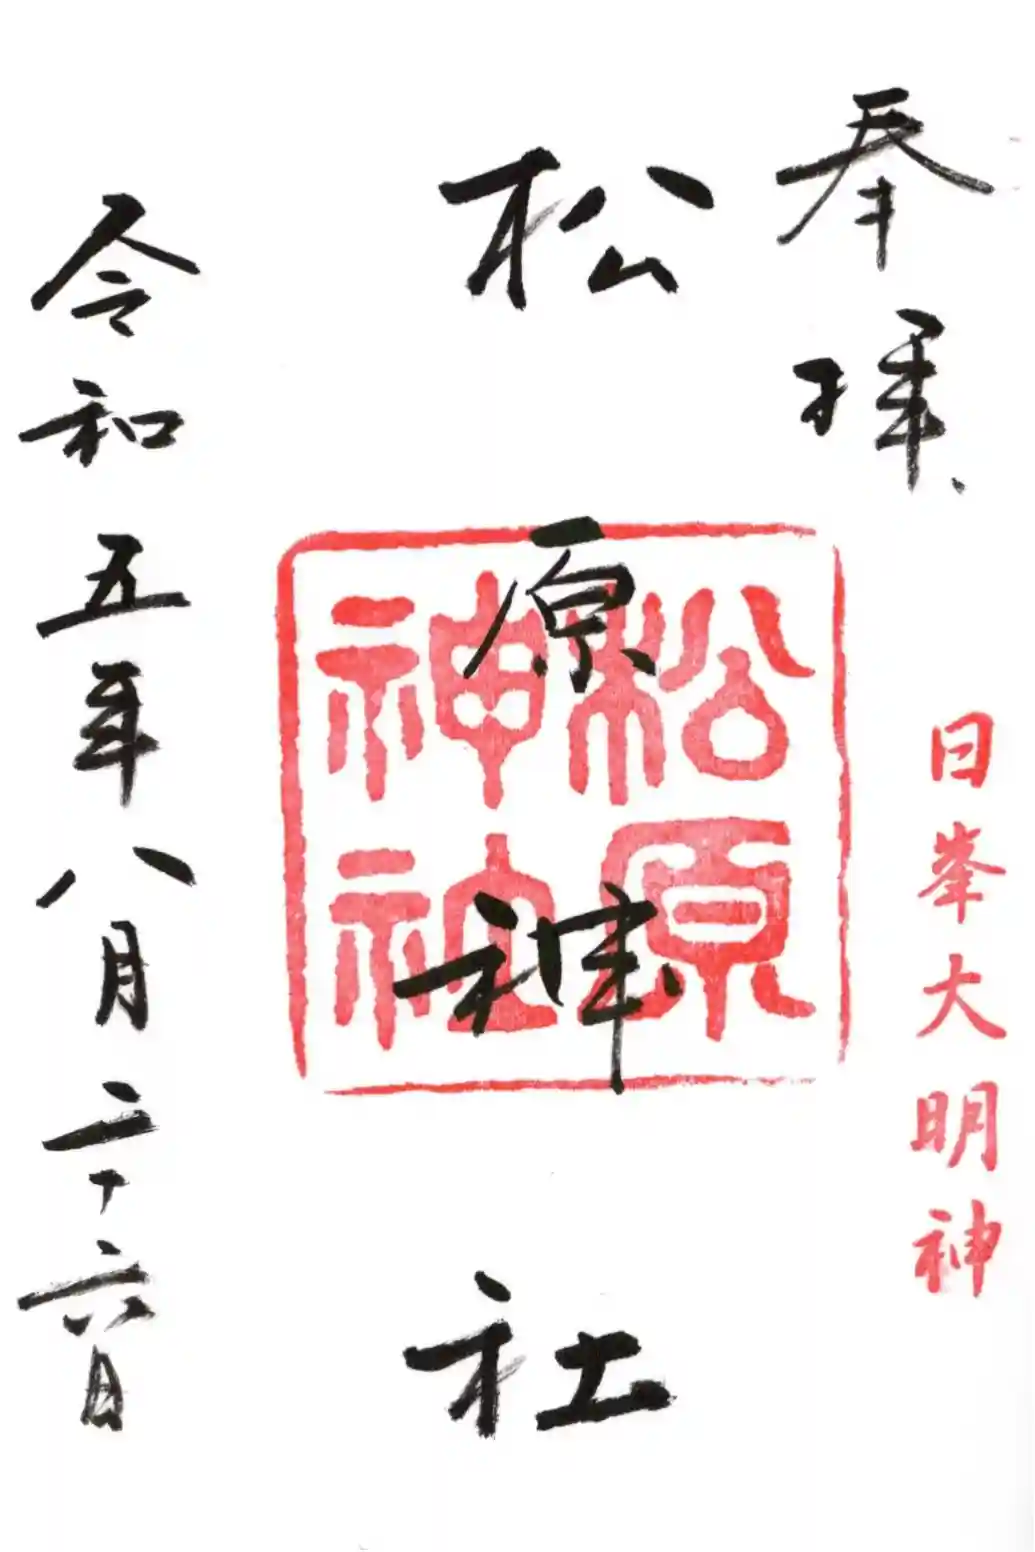 奉拝
日峯大明神
松原神社
松原
神社
令和五年八月二十六日